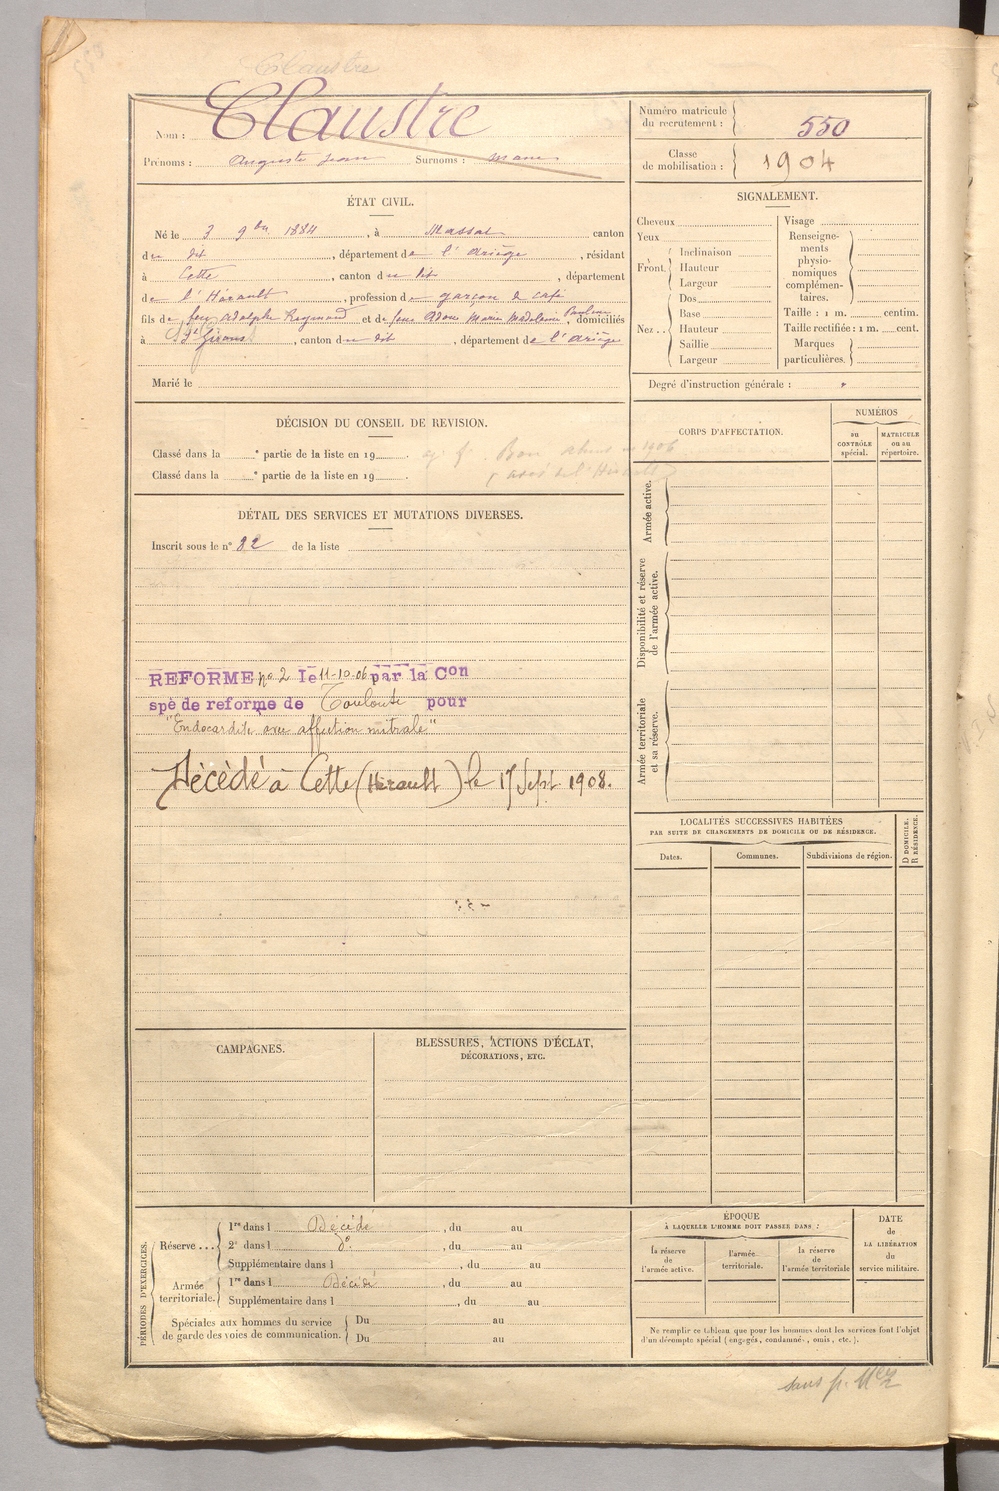 Claustre
Nom : Claustre
Prénoms : Auguste Jean Surnoms :
Numéro matricule du recrutement : 550
Classe de mobilisation : 1904
ÉTAT CIVIL.
Né le 3 9bre 1884, à Massat canton
du dit, département de l'Ariège, résidant
à Cette, canton du dit, département
de l'Hérault, profession de garçon de café
fils de feu Adolphe Raymond et de feue Adou Marie Madeleine Pauline, domiciliés
à St Girons, canton du dit, département de l'Ariège
Marié le
SIGNALEMENT.
Cheveux
Yeux
Front
Inclinaison
Hauteur
Largeur
Nez..
Dos
Base
Hauteur
Saillie
Largeur
Visage
Renseigne-
ments
physio-
nomiques
complémen-
taires.
Taille : 1 m. centim.
Taille rectifiée : 1 m. cent.
Marques
particulières.
Degré d'instruction générale :
DÉCISION DU CONSEIL DE REVISION.
Classé dans la e partie de la liste en 19 .
Classé dans la e partie de la liste en 19 .
Bon absent 1906
DÉTAIL DES SERVICES ET MUTATIONS DIVERSES.
Inscrit sous le n° 82 de la liste
REFORME no 2 le 11-10-06 par la Con
spè de reforme de Toulouse pour
"Endocardite avec affection mitrale"
Décédé à Cette (Hérault) le 17 Sept. 1908.
CORPS D'AFFECTATION.
NUMÉROS
au
CONTRÔLE
spécial.
MATRICULE
ou au
répertoire.
Armée active.
Disponibilité et réserve
de l'armée active.
Armée territoriale
et sa réserve.
LOCALITÉS SUCCESSIVES HABITÉES
PAR SUITE DE CHANGEMENTS DE DOMICILE OU DE RÉSIDENCE.
Dates.
Communes.
Subdivisions de région.
D DOMICILE.
R RÉSIDENCE.
CAMPAGNES.
BLESSURES, ACTIONS D'ÉCLAT,
DÉCORATIONS, ETC.
PÉRIODES D'EXERCICES.
Réserve...
1re dans l Décédé, du au
2e dans l do, du au
Supplémentaire dans l, du au
Armée
territoriale.
1re dans l Décédé, du au
Supplémentaire dans l, du au
Spéciales aux hommes du service
de garde des voies de communication.
Du au
Du au
ÉPOQUE
À LAQUELLE L'HOMME DOIT PASSER DANS :
la réserve
de
l'armée active.
l'armée
territoriale.
la réserve
de
l'armée territoriale
DATE
de
LA LIBÉRATION
du
service militaire.
Ne remplir ce tableau que pour les hommes dont les services font l'objet
d'un décompte spécial (engagés, condamnés, omis, etc.).
sans